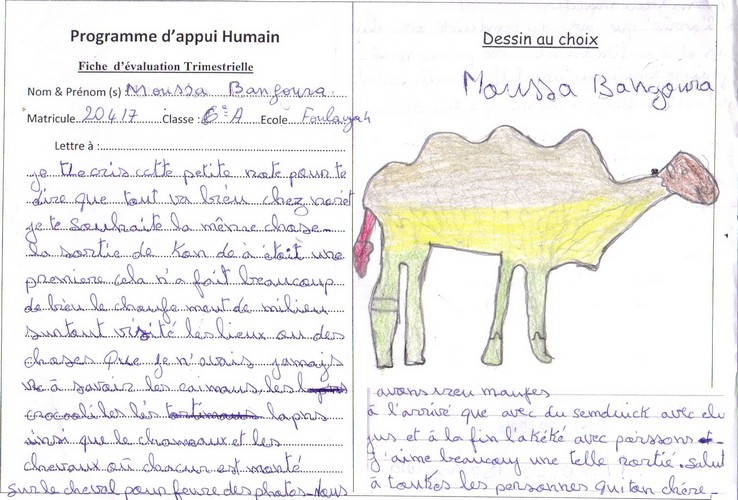 Programme d'appui Humain
Fiche d'évaluation Trimestrielle
Nom & Prénom (s) Moussa Bangoura
Matricule 20417 Classe : 6e A Ecole Foulaya 4
Lettre à :
je the cris catte petite note pour te
dire que tout va bién chez
je te souhaite la même chose
la sortie de Kon de à étoit une
premiere cela n'a fait beaucoup
de bieu le chaufe ment de milieu
surtout visité les lieux ou des
choses que je n'avais jamays
vu à savoir les caimans, les
crocodi les lés lapns
ainsi que le chameaux et les
chevaux où chacun est monté
sur le cheval pour feure des photos Nous
Dessin au choix
Moussa Bangoura
avons
à l'arrivé que avec du semduick avec du
jus et à la fin l'akéké avec poissons et
j'aime beaucoup une telle sortié. Salut
à toutes les personnes qui ton chére